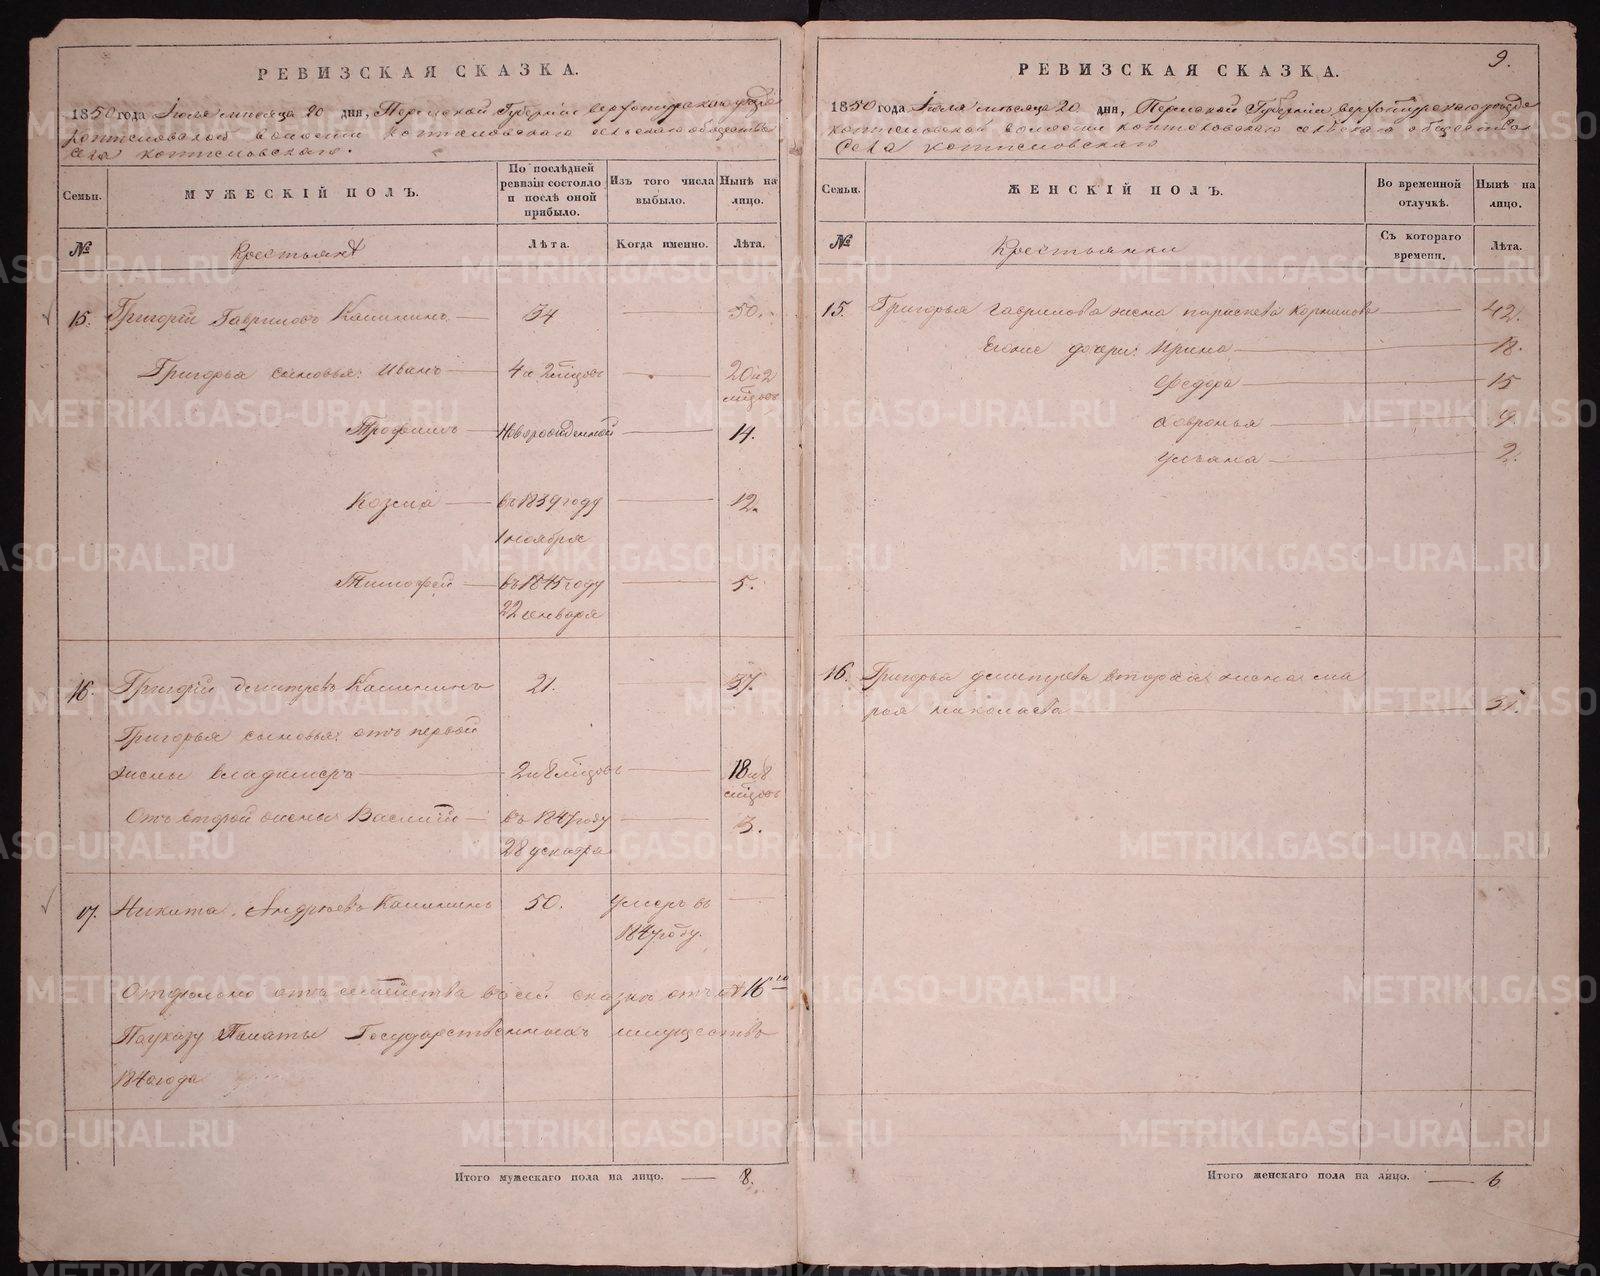 РЕВИЗСКАЯ СКАЗКА.
1850 года Июля месяца 20 дня, Пермской Губернии верхотурского уезда
коптеловской волости коптеловского сельского общества
Села коптеловскаго.
Семьи.
МУЖЕСКІЙ ПОЛЪ.
По послѣдней ревизіи состояло и послѣ оной прибыло.
Изъ того числа выбыло.
Нынѣ на лицо.
№
Крестьянѣ
Лѣта.
Когда именно.
Лѣта.
15. Григорій Гавриловъ Калининъ 34 50.
Григорья сыновья: Иванъ 4 и 2 мѣсцовъ 20 и 2 мѣсцовъ
Трофимъ Новорожденной 14.
Козма въ 1839 году 12.
1 ноября
Тимофей въ 1845 году 5.
22 генваря
16. Григорій Дмитревъ Калининъ 21. 37.
Григорья сыновья: отъ первой
жены владимеръ 2 и 8 мѣсцовъ 18 и 8 мѣсцовъ
Отъ второй жены Василій въ 1847 году 3.
28 декабря
17. Никита Андреевъ Калининъ 50. умеръ въ
1847 году.
Отдельно отъ семейства в сей сказкѣ отъ № 16го
По указу Палаты Государственныхъ имуществъ
1840 года
Итого мужескаго пола на лицо. 8.
9.
РЕВИЗСКАЯ СКАЗКА.
1850 года Июля месяца 20 дня, Пермской Губернии верхотурского уезда
коптеловской волости коптеловского сельского общества
Села коптеловскаго
Семьи.
ЖЕНСКІЙ ПОЛЪ.
Во временной отлучкѣ.
Нынѣ на лицо.
№
Крестьянки
Съ котораго времени.
Лѣта.
15. Григорья гаврилова жена параскева корнилова 42.
Егоже дочери: Ирина 18.
Федора 15
Хавронья 9.
Ульяна 2.
16. Григорья дмитрева вторая жена ма
рья николаева 37.
Итого женскаго пола на лицо. 6
METRIKI.GASO-URAL.RU